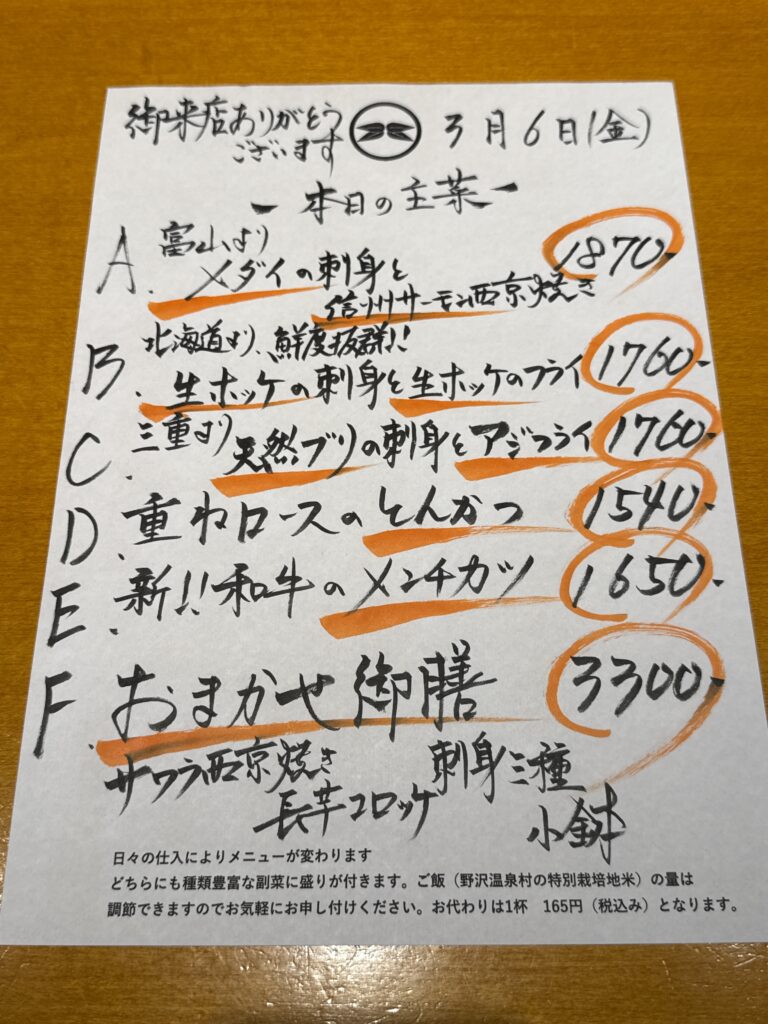 御来店ありがとう
ございます
3月6日(金)
ー本日の主菜ー
A. 富山より
メダイの刺身と
信州サーモン西京焼き
1870-
B. 北海道より、鮮度抜群!!
生ホッケの刺身と生ホッケのフライ
1760-
C. 三重より
天然ブリの刺身とアジフライ
1760-
D. 重ねロースのとんかつ
1540-
E. 新!!和牛のメンチカツ
1650-
F. おまかせ御膳
3300-
サワラ西京焼き 刺身三種
長芋コロッケ 小鉢
日々の仕入によりメニューが変わります
どちらにも種類豊富な副菜に盛りが付きます。ご飯(野沢温泉村の特別栽培地米)の量は
調節できますのでお気軽にお申し付けください。お代わりは1杯 165円(税込み)となります。